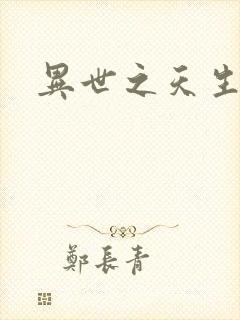 異世之天生
鄭長青